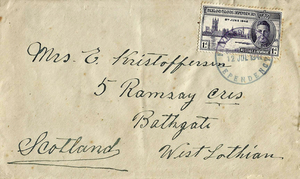 FALKLAND ISLANDS DEPENDENCIES
8TH JUNE 1946
1D 1D
Mrs. E. Kristofferson
5 Ramsay Cres
Bathgate
Scotland West Lothian